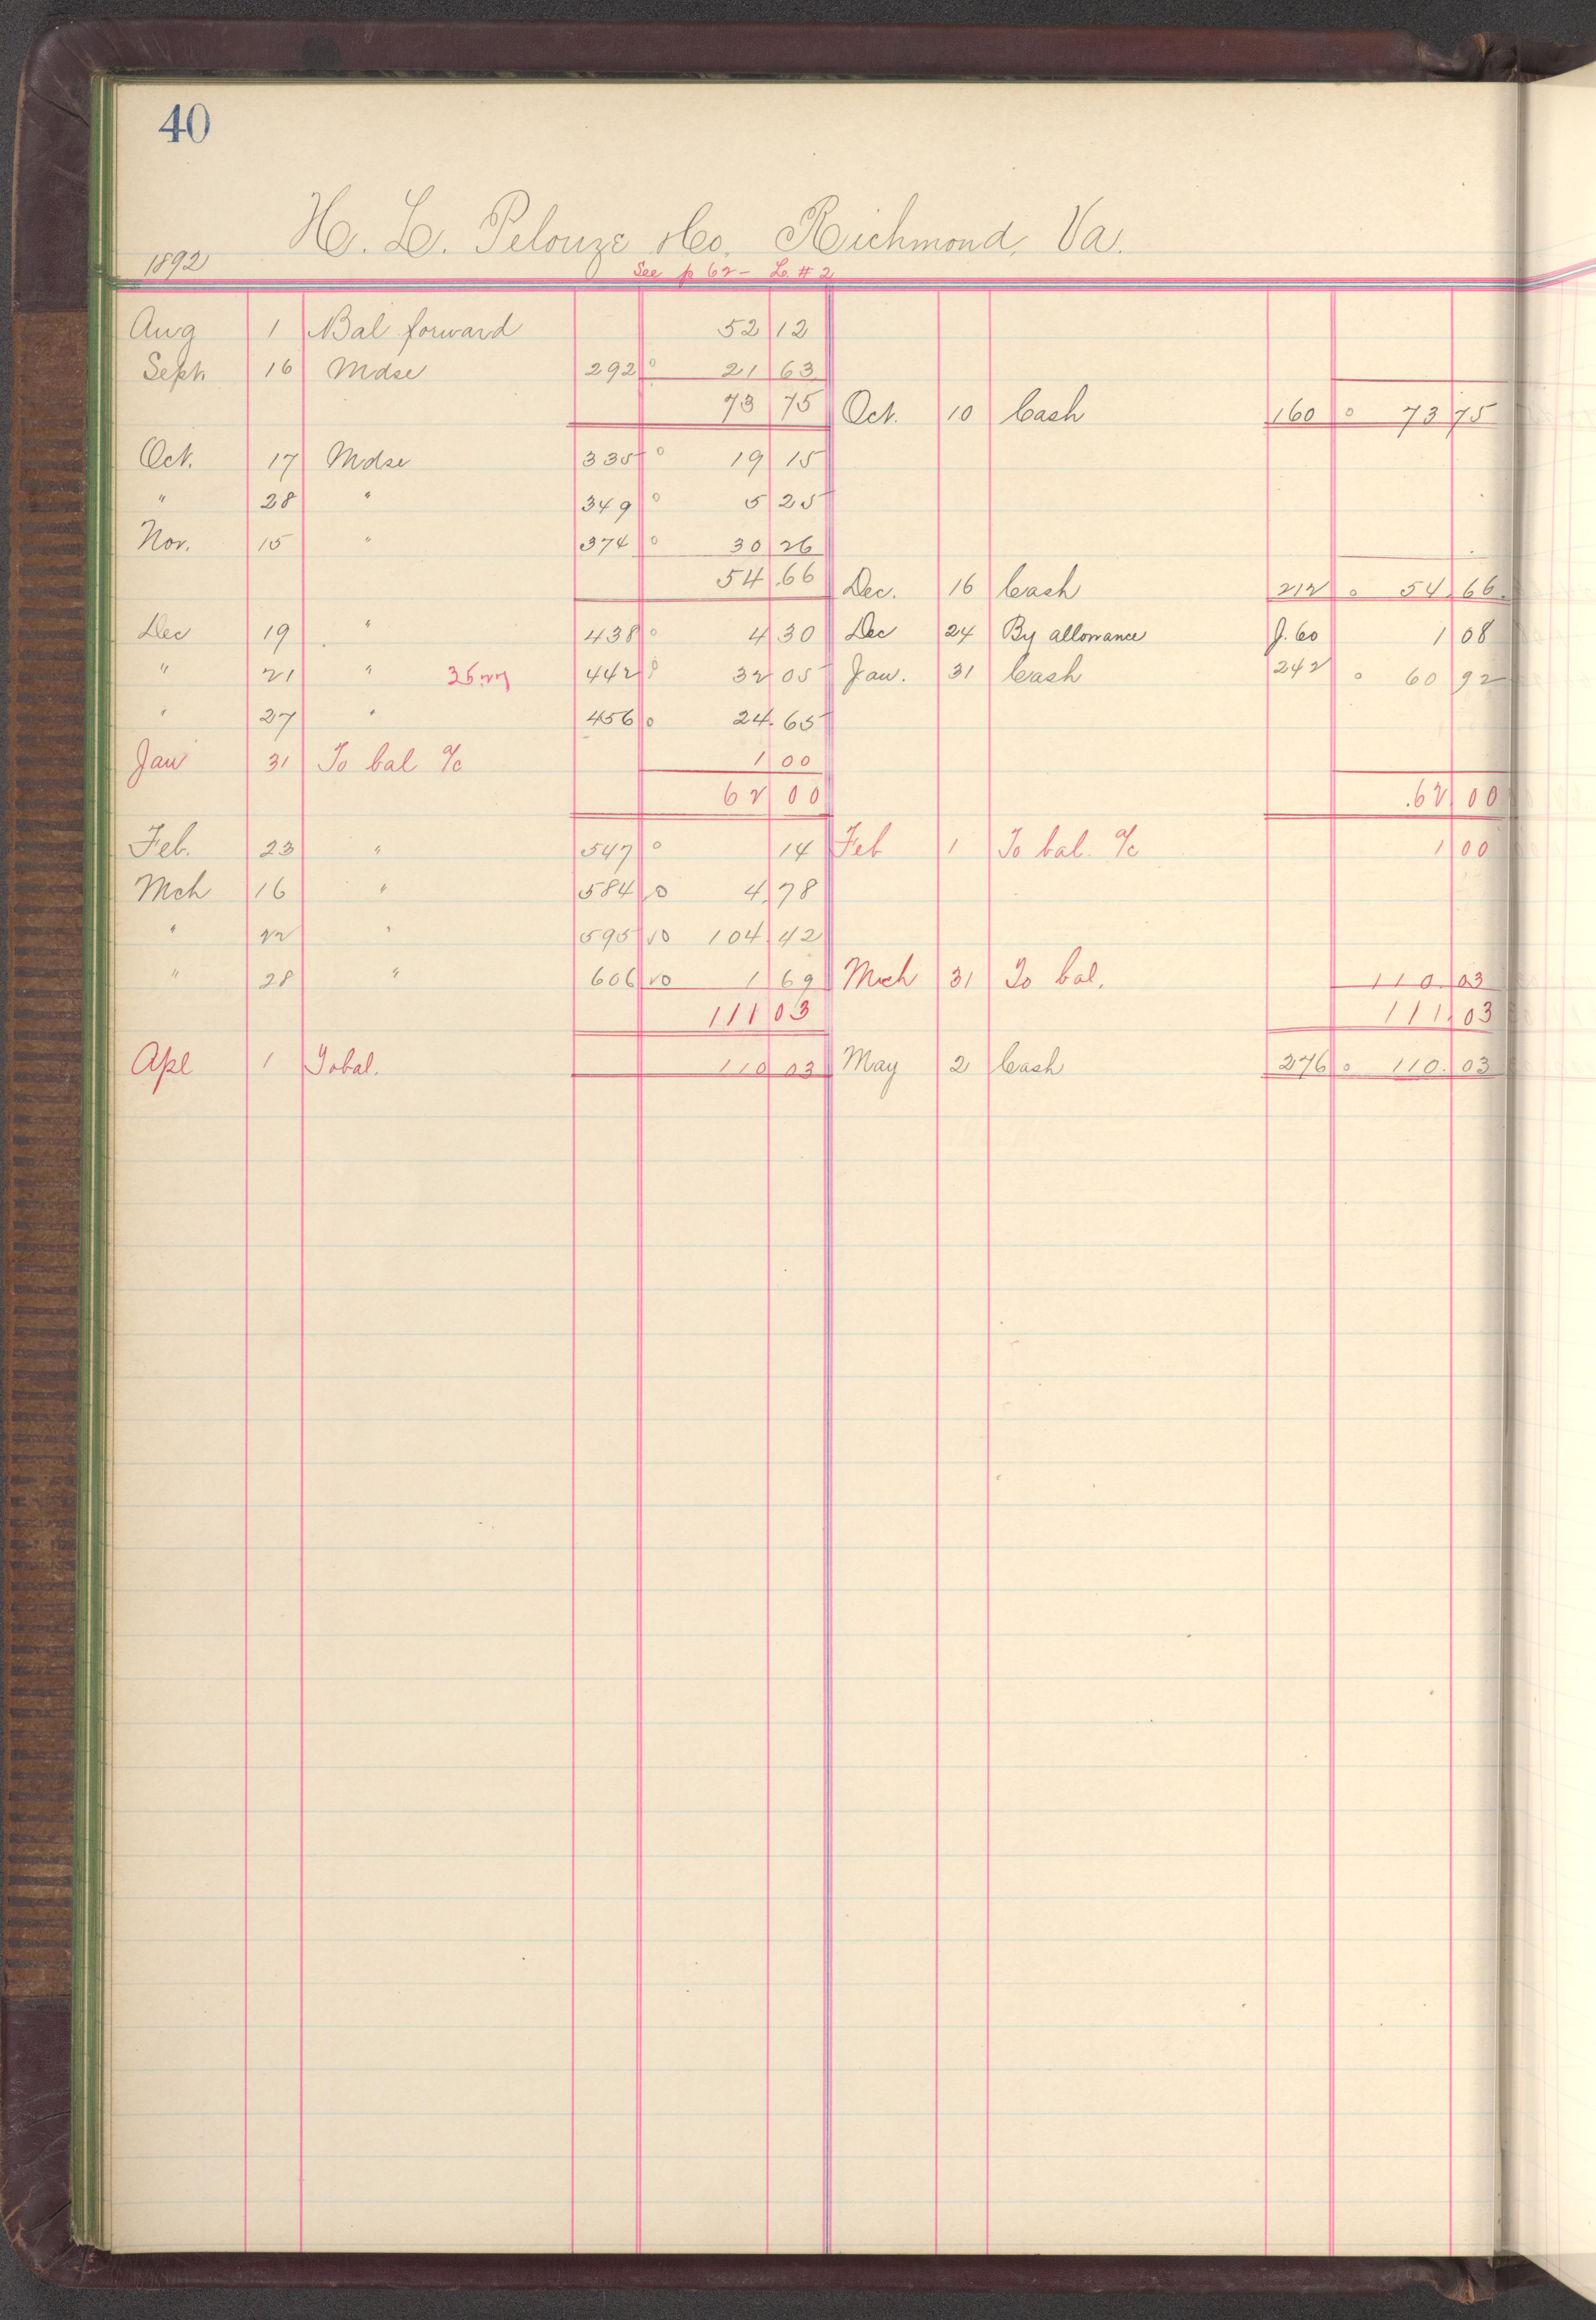 40
H. L. Pelouze & Co. Richmond, Va.
1892
See p 62 - L. # 2
Aug 1 Bal forward 52 12
Sept 16 Mdse 292 o 21 63
73 75 Oct. 10 Cash 160 o 73 75
Oct. 17 Mdse 335 o 19 15
" 28 " 349 o 5 25
Nov. 15 " 374 o 30 26
54.66 Dec. 16 Cash 212 o 54.66.
Dec 19 " 438 o 4 30 Dec 24 By allowance J. 60 1 08
" 21 " 442 o 32 05 Jan. 31 Cash 242 o 60 92
" 27 " 456 o 24.65
Jan 31 To bal a/c 1 00
62 00 .62 00
Feb. 23 " 547 o 14 Feb 1 To bal. a/c 1 00
Mch 16 " 584 o 4.78
" 22 " 595 o 104 42
" 28 " 606 o 1 69 Mch 31 To bal. 110.03
111 03 111.03
Apl 1 To bal. 110 03 May 2 Cash 276 o 110.03